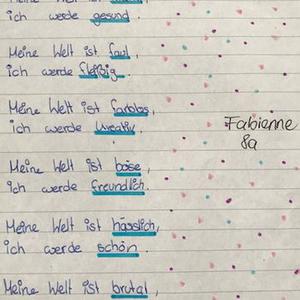 ich werde gesund.
Meine Welt ist faul,
ich werde fleißig.
Meine Welt ist farblos,
ich werde kreativ.
Fabienne
8a
Meine Welt ist böse,
ich werde freundlich.
Meine Welt ist hässlich,
ich werde schön.
Meine Welt ist brutal,